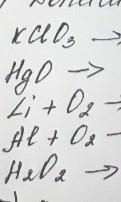 KClO₃ →
HgO →
Li + O₂ →
Al + O₂ -
H₂O₂ →